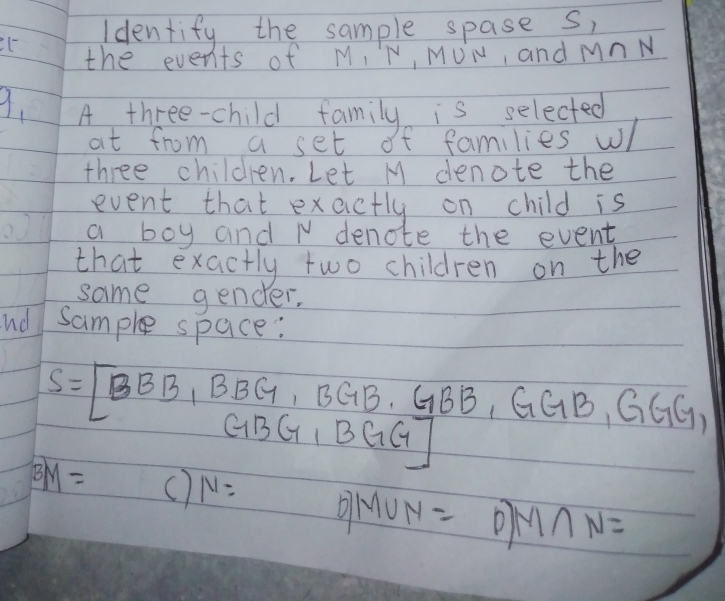 Identify the sample spase S,
the events of M, N, MUN, and M∩N
9, A three-child family is selected
at from a set of families w/
three children. Let M denote the
event that exactly on child is
a boy and N denote the event
that exactly two children on the
same gender.
nd Sample space:
S=[BBB, BBG, BGB, GBB, GGB, GGG,
GBG, BGG]
B)M= C)N= D)MUN= D)M∩N=